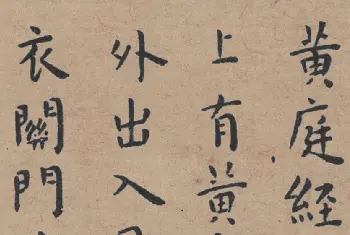 黄庭経
上有黄
外出入
衣關門